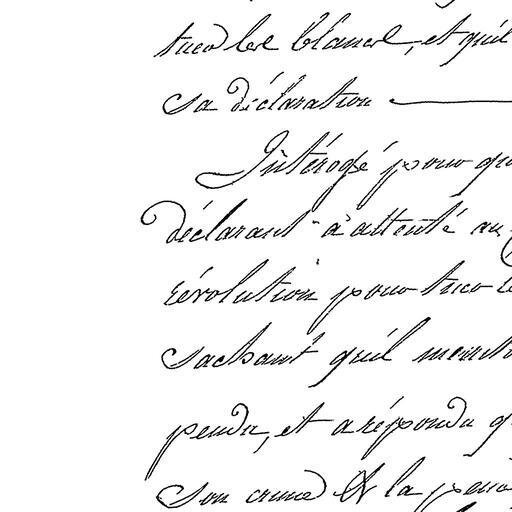 tuer les blancs, et qu'il
sa déclaration
Intérogé pour qu
déclarant a attenté au
révolution pour tuer le
sachant qu'il
pendu, et a répondu q
Son crime & la